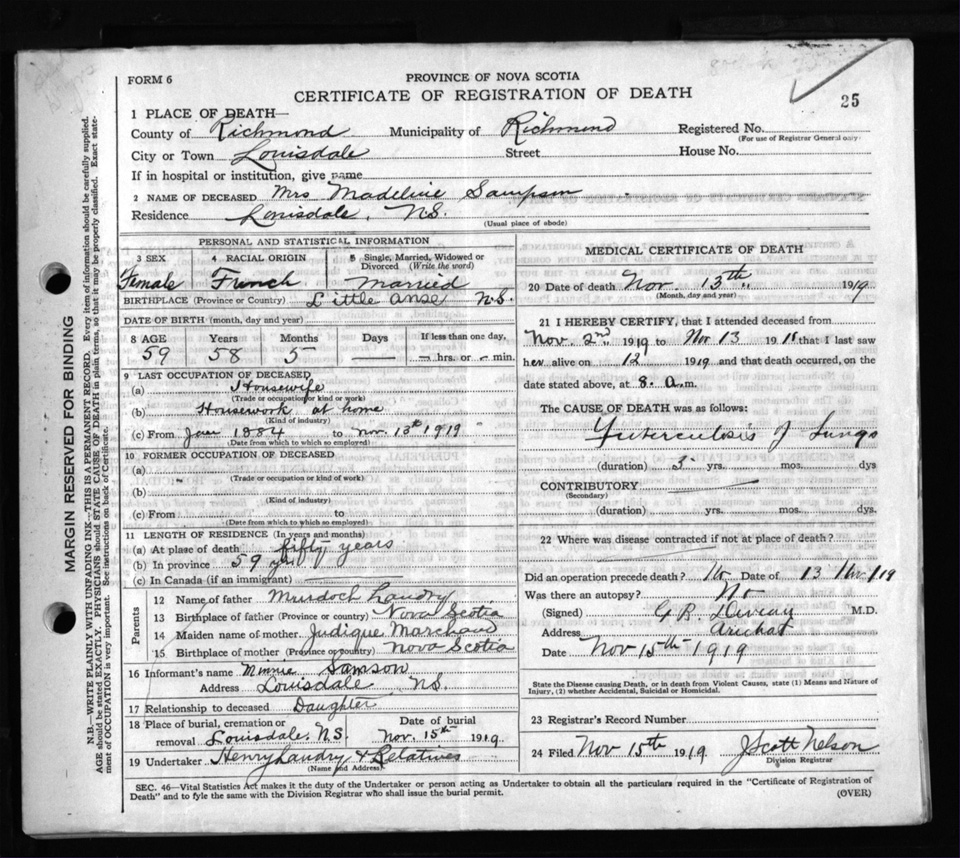 FORM 6
PROVINCE OF NOVA SCOTIA
CERTIFICATE OF REGISTRATION OF DEATH
25
1 PLACE OF DEATH—
County of Richmond Municipality of Richmond Registered No.
(For use of Registrar General only)
City or Town Louisdale Street House No.
If in hospital or institution, give name
2 NAME OF DECEASED Mrs Madeline Sampson
Residence Louisdale, N.S.
(Usual place of abode)
PERSONAL AND STATISTICAL INFORMATION
3 SEX Female
4 RACIAL ORIGIN French
5 Single, Married, Widowed or Divorced (Write the word) Married
BIRTHPLACE (Province or Country) Little Anse N.S.
DATE OF BIRTH (month, day and year)
8 AGE Years Months Days If less than one day,
59 58 5 — — hrs. or — min.
9 LAST OCCUPATION OF DECEASED
(a) Housewife
(Trade or occupation or kind of work)
(b) Housework at home
(Kind of industry)
(c) From Jan 1884 to Nov. 13th 1919 "
(Date from which to which so employed)
10 FORMER OCCUPATION OF DECEASED
(a)
(Trade or occupation or kind of work)
(b)
(Kind of industry)
(c) From to
(Date from which to which so employed)
11 LENGTH OF RESIDENCE (In years and months)
(a) At place of death fifty years
(b) In province 59 yrs
(c) In Canada (if an immigrant)
Parents
12 Name of father Murdoch Landry
13 Birthplace of father (Province or country) Nova Scotia
14 Maiden name of mother Judique Marchand
15 Birthplace of mother (Province or country) Nova Scotia
16 Informant's name Minnie Samson
Address Louisdale N.S.
17 Relationship to deceased Daughter
18 Place of burial, cremation or removal Louisdale, N.S.
Date of burial Nov. 15th 1919
19 Undertaker Henry Landry & Relatives
(Name and Address)
MEDICAL CERTIFICATE OF DEATH
20 Date of death Nov. 13th " 1919
(Month, day and year)
21 I HEREBY CERTIFY, that I attended deceased from
Nov. 2nd 1919 to Nov 13 19 that I last saw
her alive on 12 1919 and that death occurred, on the
date stated above, at 8. a.m.
The CAUSE OF DEATH was as follows:
Tuberculosis of Lungs
(duration) 3 yrs. mos. dys
CONTRIBUTORY
(Secondary)
(duration) yrs. mos. dys.
22 Where was disease contracted if not at place of death?
Did an operation precede death? No Date of 13 Nov 1919
Was there an autopsy? No
(Signed) G. R. Deveau M.D.
Address Arichat
Date Nov 15th 1919
State the Disease causing Death, or in death from Violent Causes, state (1) Means and Nature of
Injury, (2) whether Accidental, Suicidal or Homicidal.
23 Registrar's Record Number
24 Filed Nov 15th 1919 J Scott Nelson
Division Registrar
SEC. 46—Vital Statistics Act makes it the duty of the Undertaker or person acting as Undertaker to obtain all the particulars required in the "Certificate of Registration of
Death" and to fyle the same with the Division Registrar who shall issue the burial permit.
(OVER)
MARGIN RESERVED FOR BINDING
N.B.—WRITE PLAINLY WITH UNFADING INK—THIS IS A PERMANENT RECORD. Every item of information should be carefully supplied.
AGE should be stated EXACTLY. PHYSICIANS should STATE CAUSE OF DEATH in plain terms, so that it may be properly classified. Exact statement
of OCCUPATION is very important. See instructions on back of Certificate.